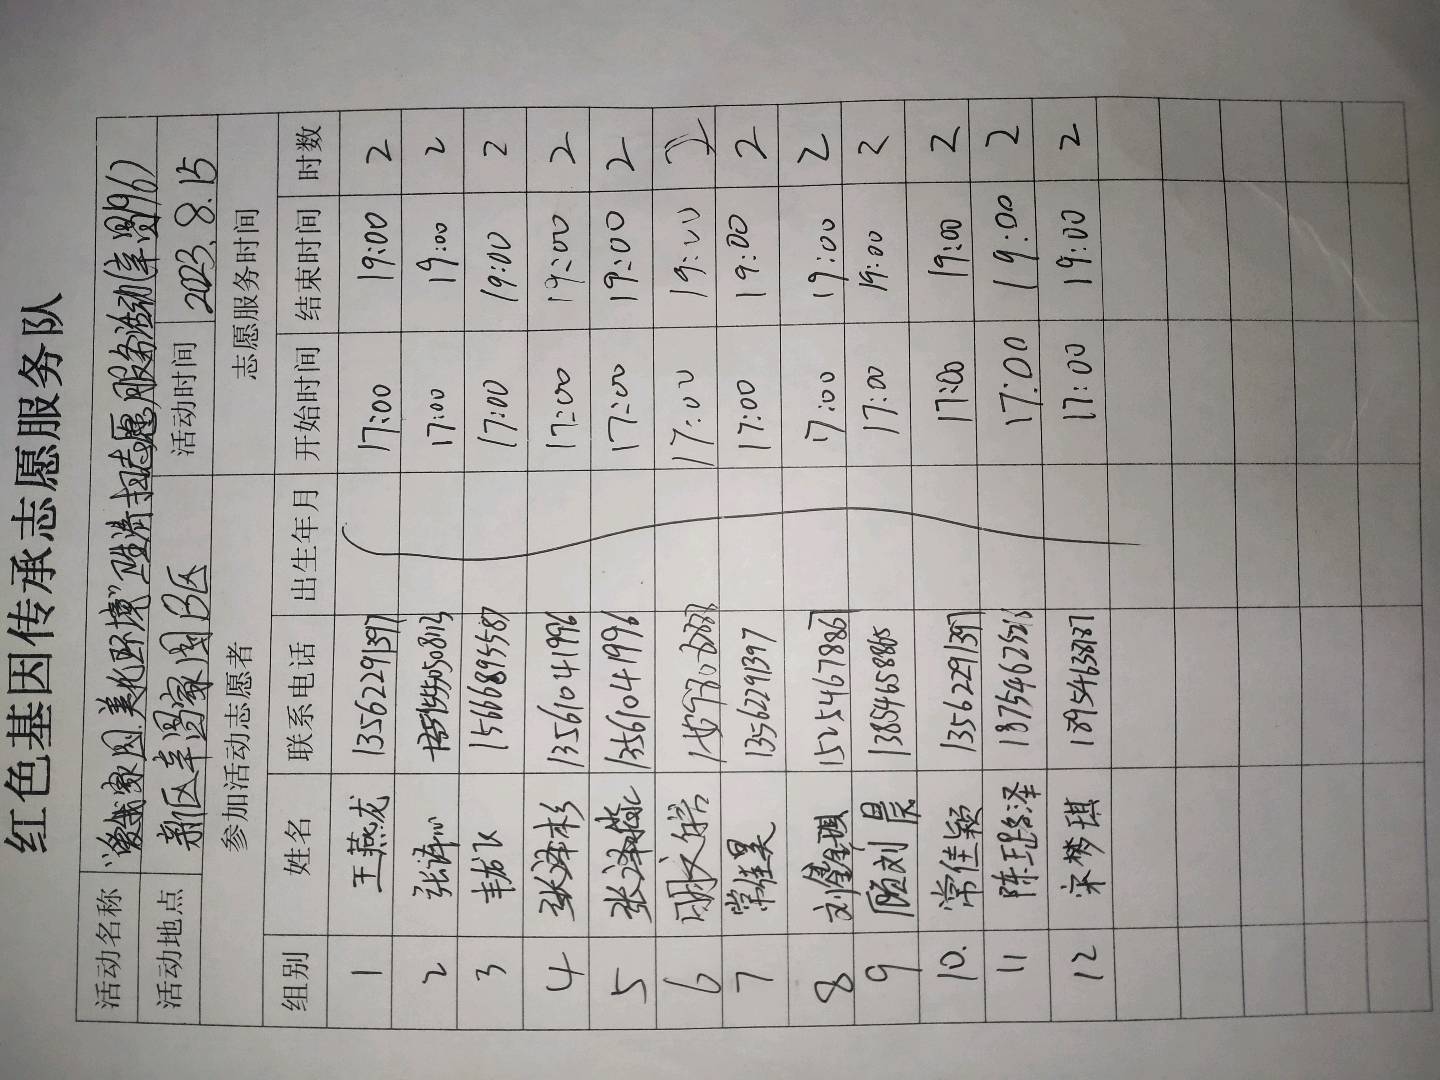 红色基因传承志愿服务队
活动名称 "爱我家园 美化环境"卫生清扫志愿服务活动(幸累196)
活动地点 新区幸累家园B区 活动时间 2023.8.15
参加活动志愿者 志愿服务时间
组别 姓名 联系电话 出生年月 开始时间 结束时间 时数
1 王燕龙 13562291397 17:00 19:00 2
2 17:00 19:00 2
3 15666895587 17:00 19:00 2
4 张泽杉 13561041996 17:00 19:00 2
5 张泽 13561041996 17:00 19:00 2
6 17:00 19:00 2
7 常佳昊 13562291397 17:00 19:00 2
8 刘鑫琪 15254678867 17:00 19:00 2
9 顾刘晨 13854658865 17:00 19:00 2
10. 常佳颖 13562291397 17:00 19:00 2
11 陈 泽 17:00 19:00 2
12 宋梦琪 18954638187 17:00 19:00 2